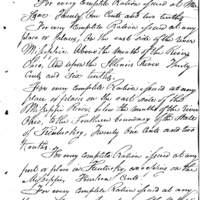 For every complete Ration issued at
Twenty One Cents and two tenths
For every complete Ration issued at any
place or places, On the east side of the river
Mississippi Above the mouth of the River
Ohio, And upon the Illinois River Twenty
Cents and Six tenths
For every complete Ration issued at any
place or places on the east side of the
Mississippi River, below the mouth of the river
Ohio, to the Southern boundary of the State
of Kentucky, Twenty One Cents and two
tenths
For every complete Ration issued at any
post or place in Kentucky, on the
Mississippi Cents
For every complete Ration issued at any